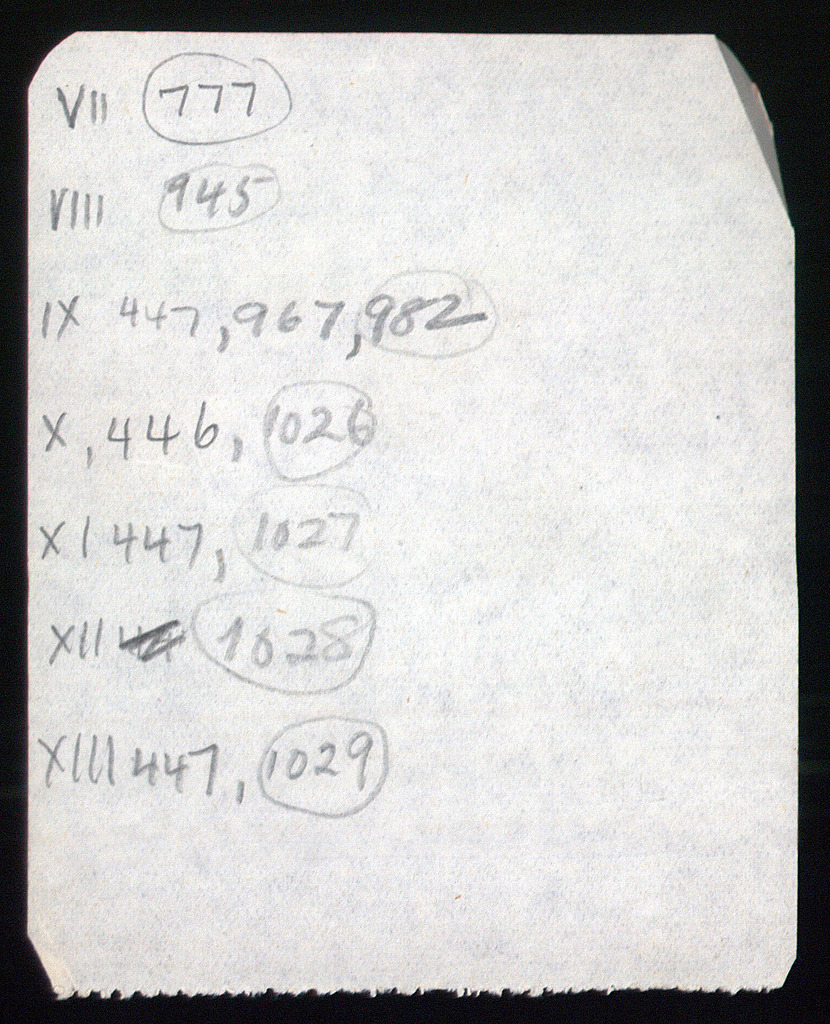 VII 777
VIII 945
IX 447, 967, 982
X, 446, 1026
XI 447, 1027
XII 1028
XIII 447, 1029